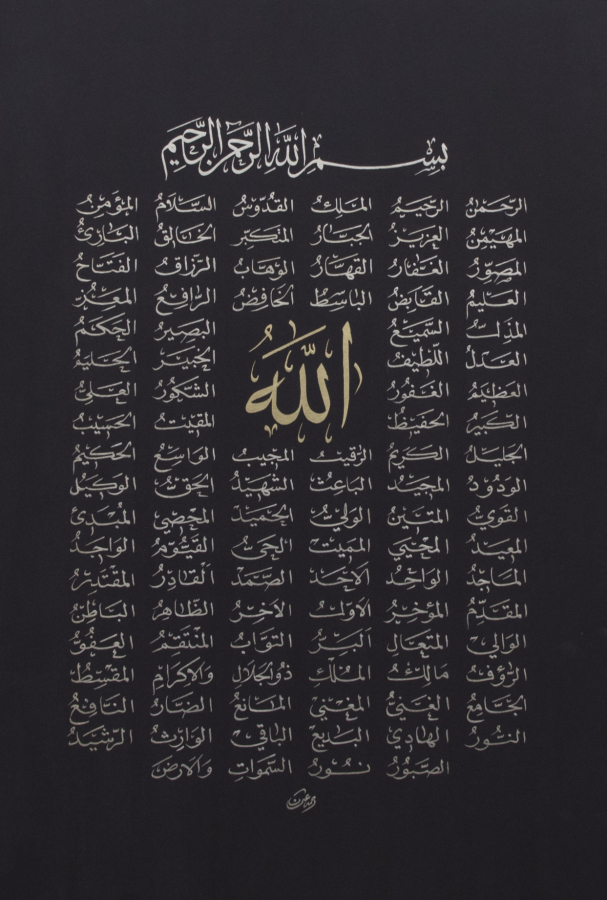 بسم الله الرحمن الرحيم
الرحمن الرحيم الملك القدوس السلام المؤمن
المهيمن العزيز الجبار المتكبر الخالق البارئ
المصور الغفار القهار الوهاب الرزاق الفتاح
العليم القابض الباسط الخافض الرافع المعز
المذل السميع البصير الحكم
العدل اللطيف الخبير الحليم
العظيم الغفور الشكور العلي
الكبير الحفيظ المقيت الحسيب
الله
الجليل الكريم الرقيب المجيب الواسع الحكيم
الودود المجيد الباعث الشهيد الحق الوكيل
القوي المتين الولي الحميد المحصي المبدئ
المعيد المحيي المميت الحي القيوم الواجد
الماجد الواحد الاحد الصمد القادر المقتدر
المقدم المؤخر الاول الآخر الظاهر الباطن
الوالي المتعال البر التواب المنتقم العفو
الرؤف مالك الملك ذوالجلال والاكرام المقسط
الجامع الغني المغني المانع الضار النافع
النور الهادي البديع الباقي الوارث الرشيد
الصبور نور السموات والارض